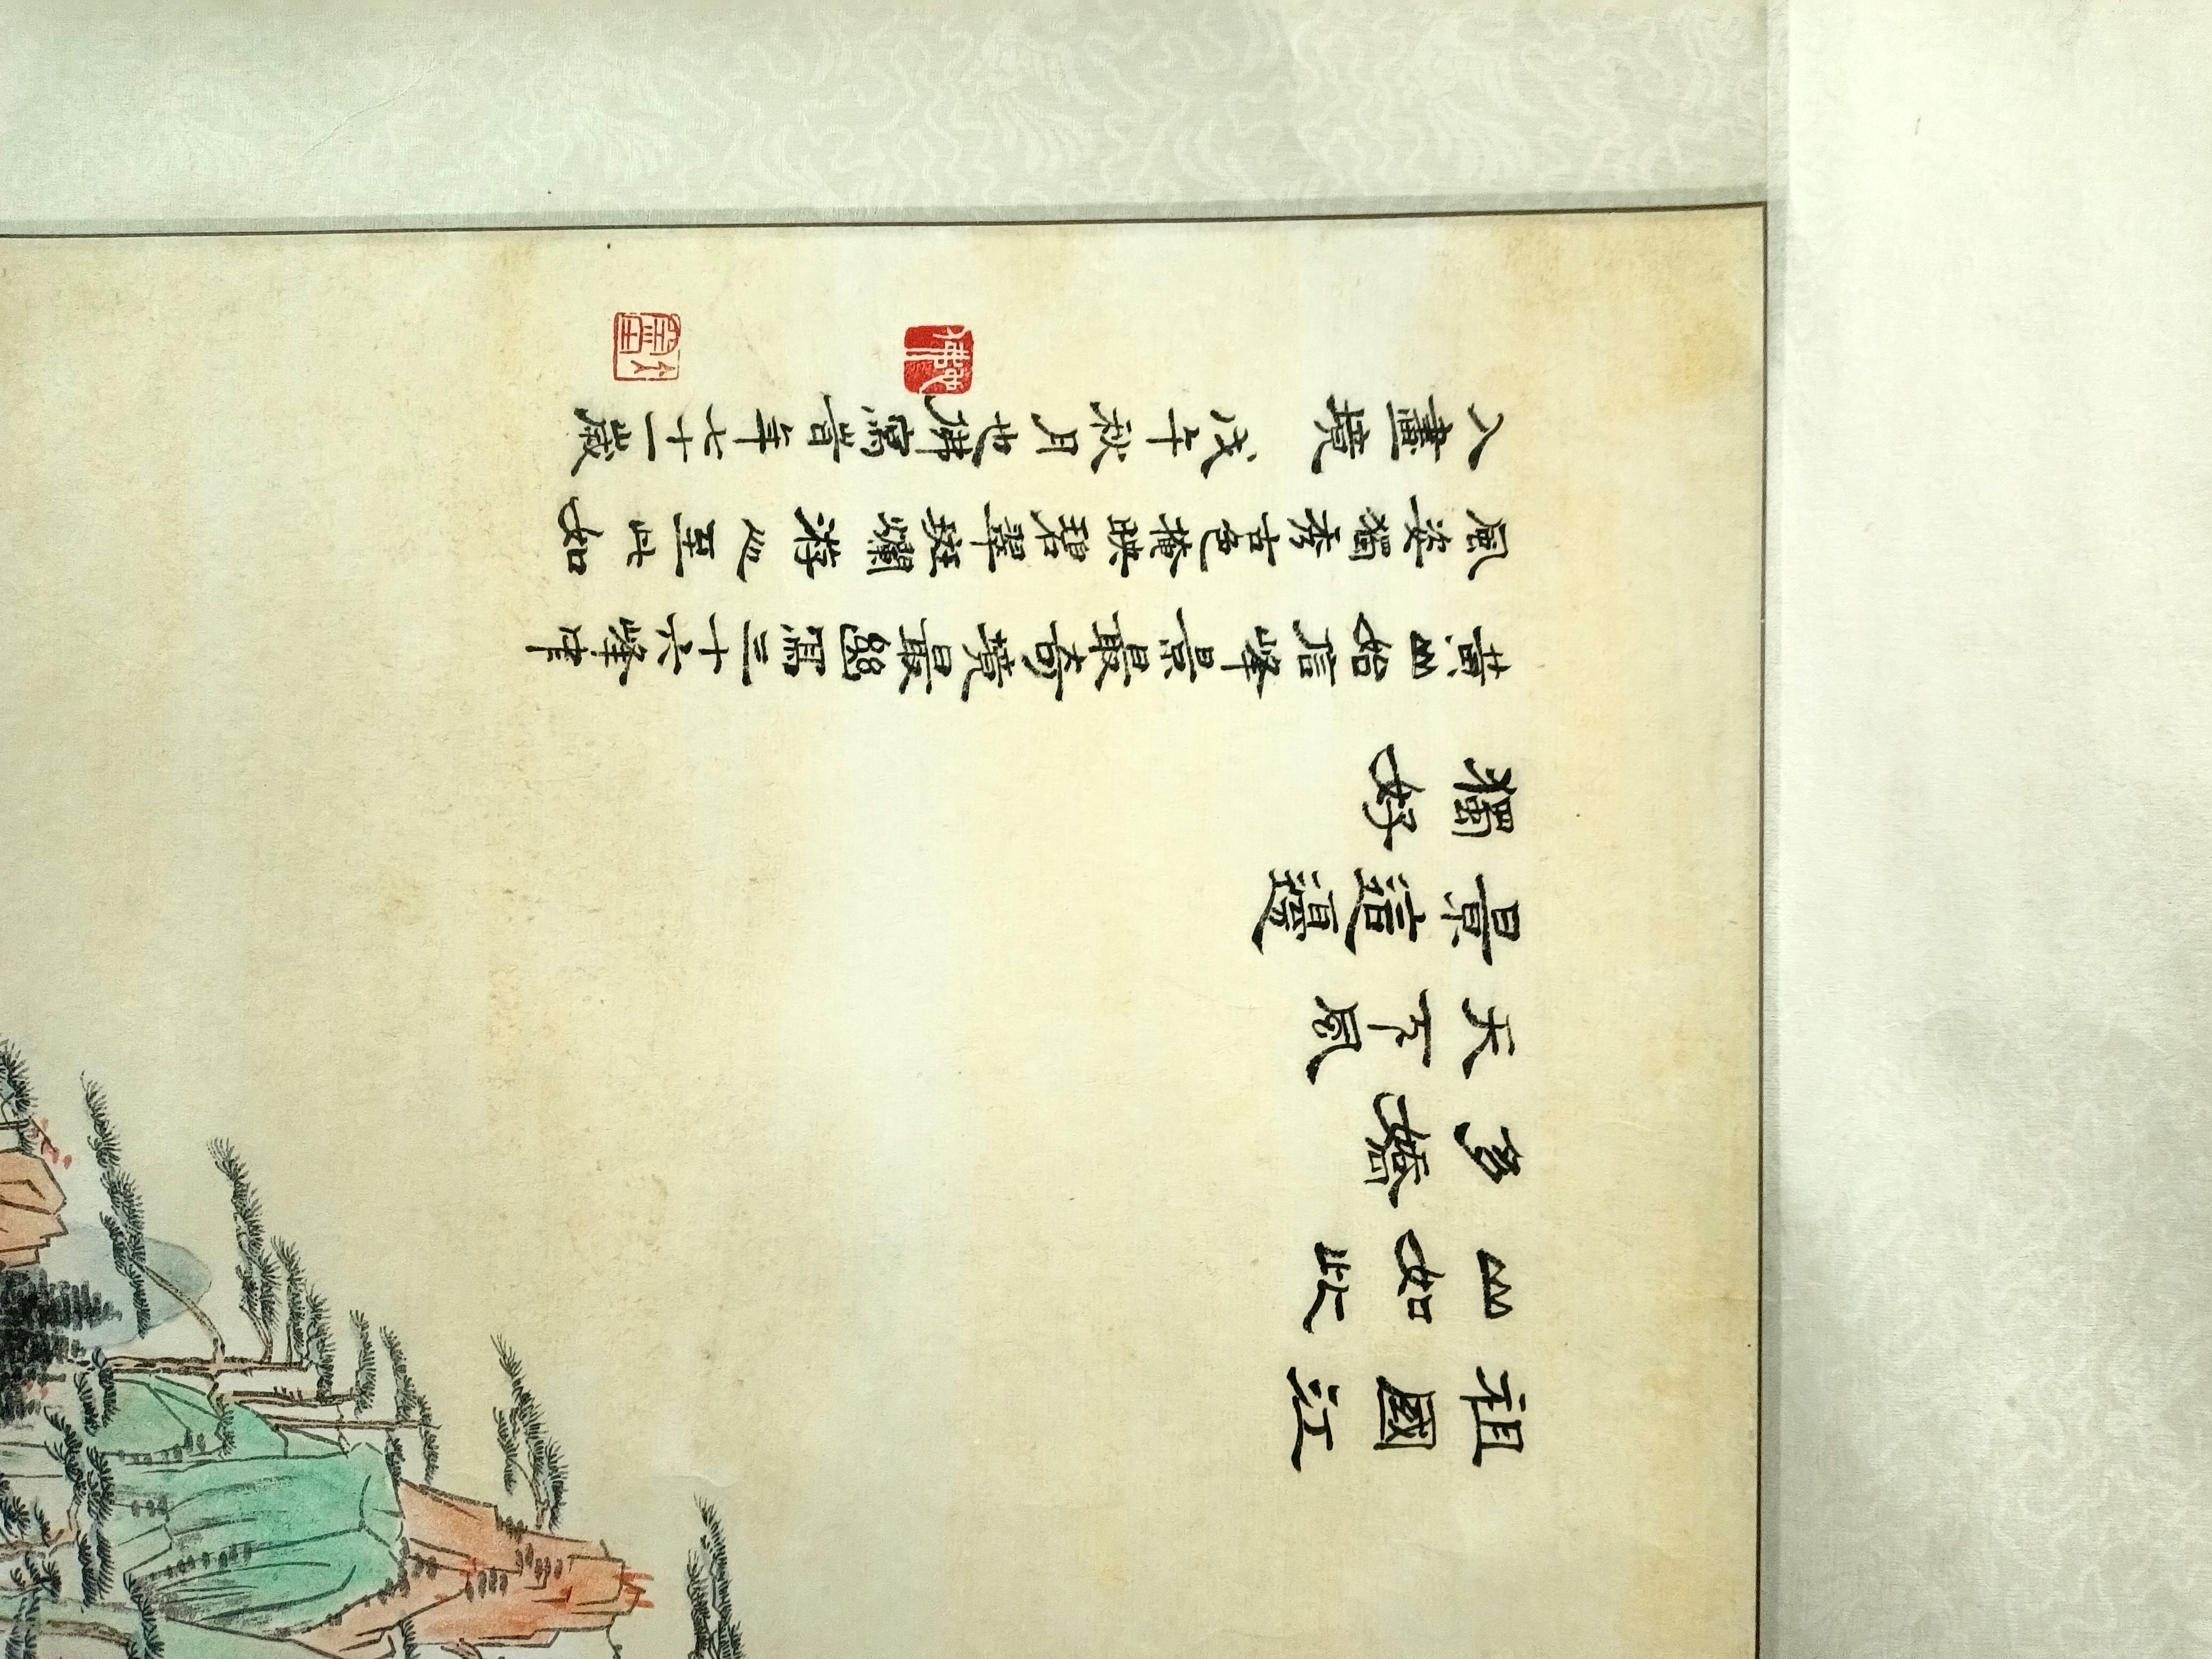 祖國江
山如此
多嬌
天下風
景這邊
獨好
黃山始信峰景最奇境最幽為三十六峰中
風姿獨秀古色掩映碧翠斑斕游人至此如
入畫境 戊午秋月也佛寫旹年七十一歲